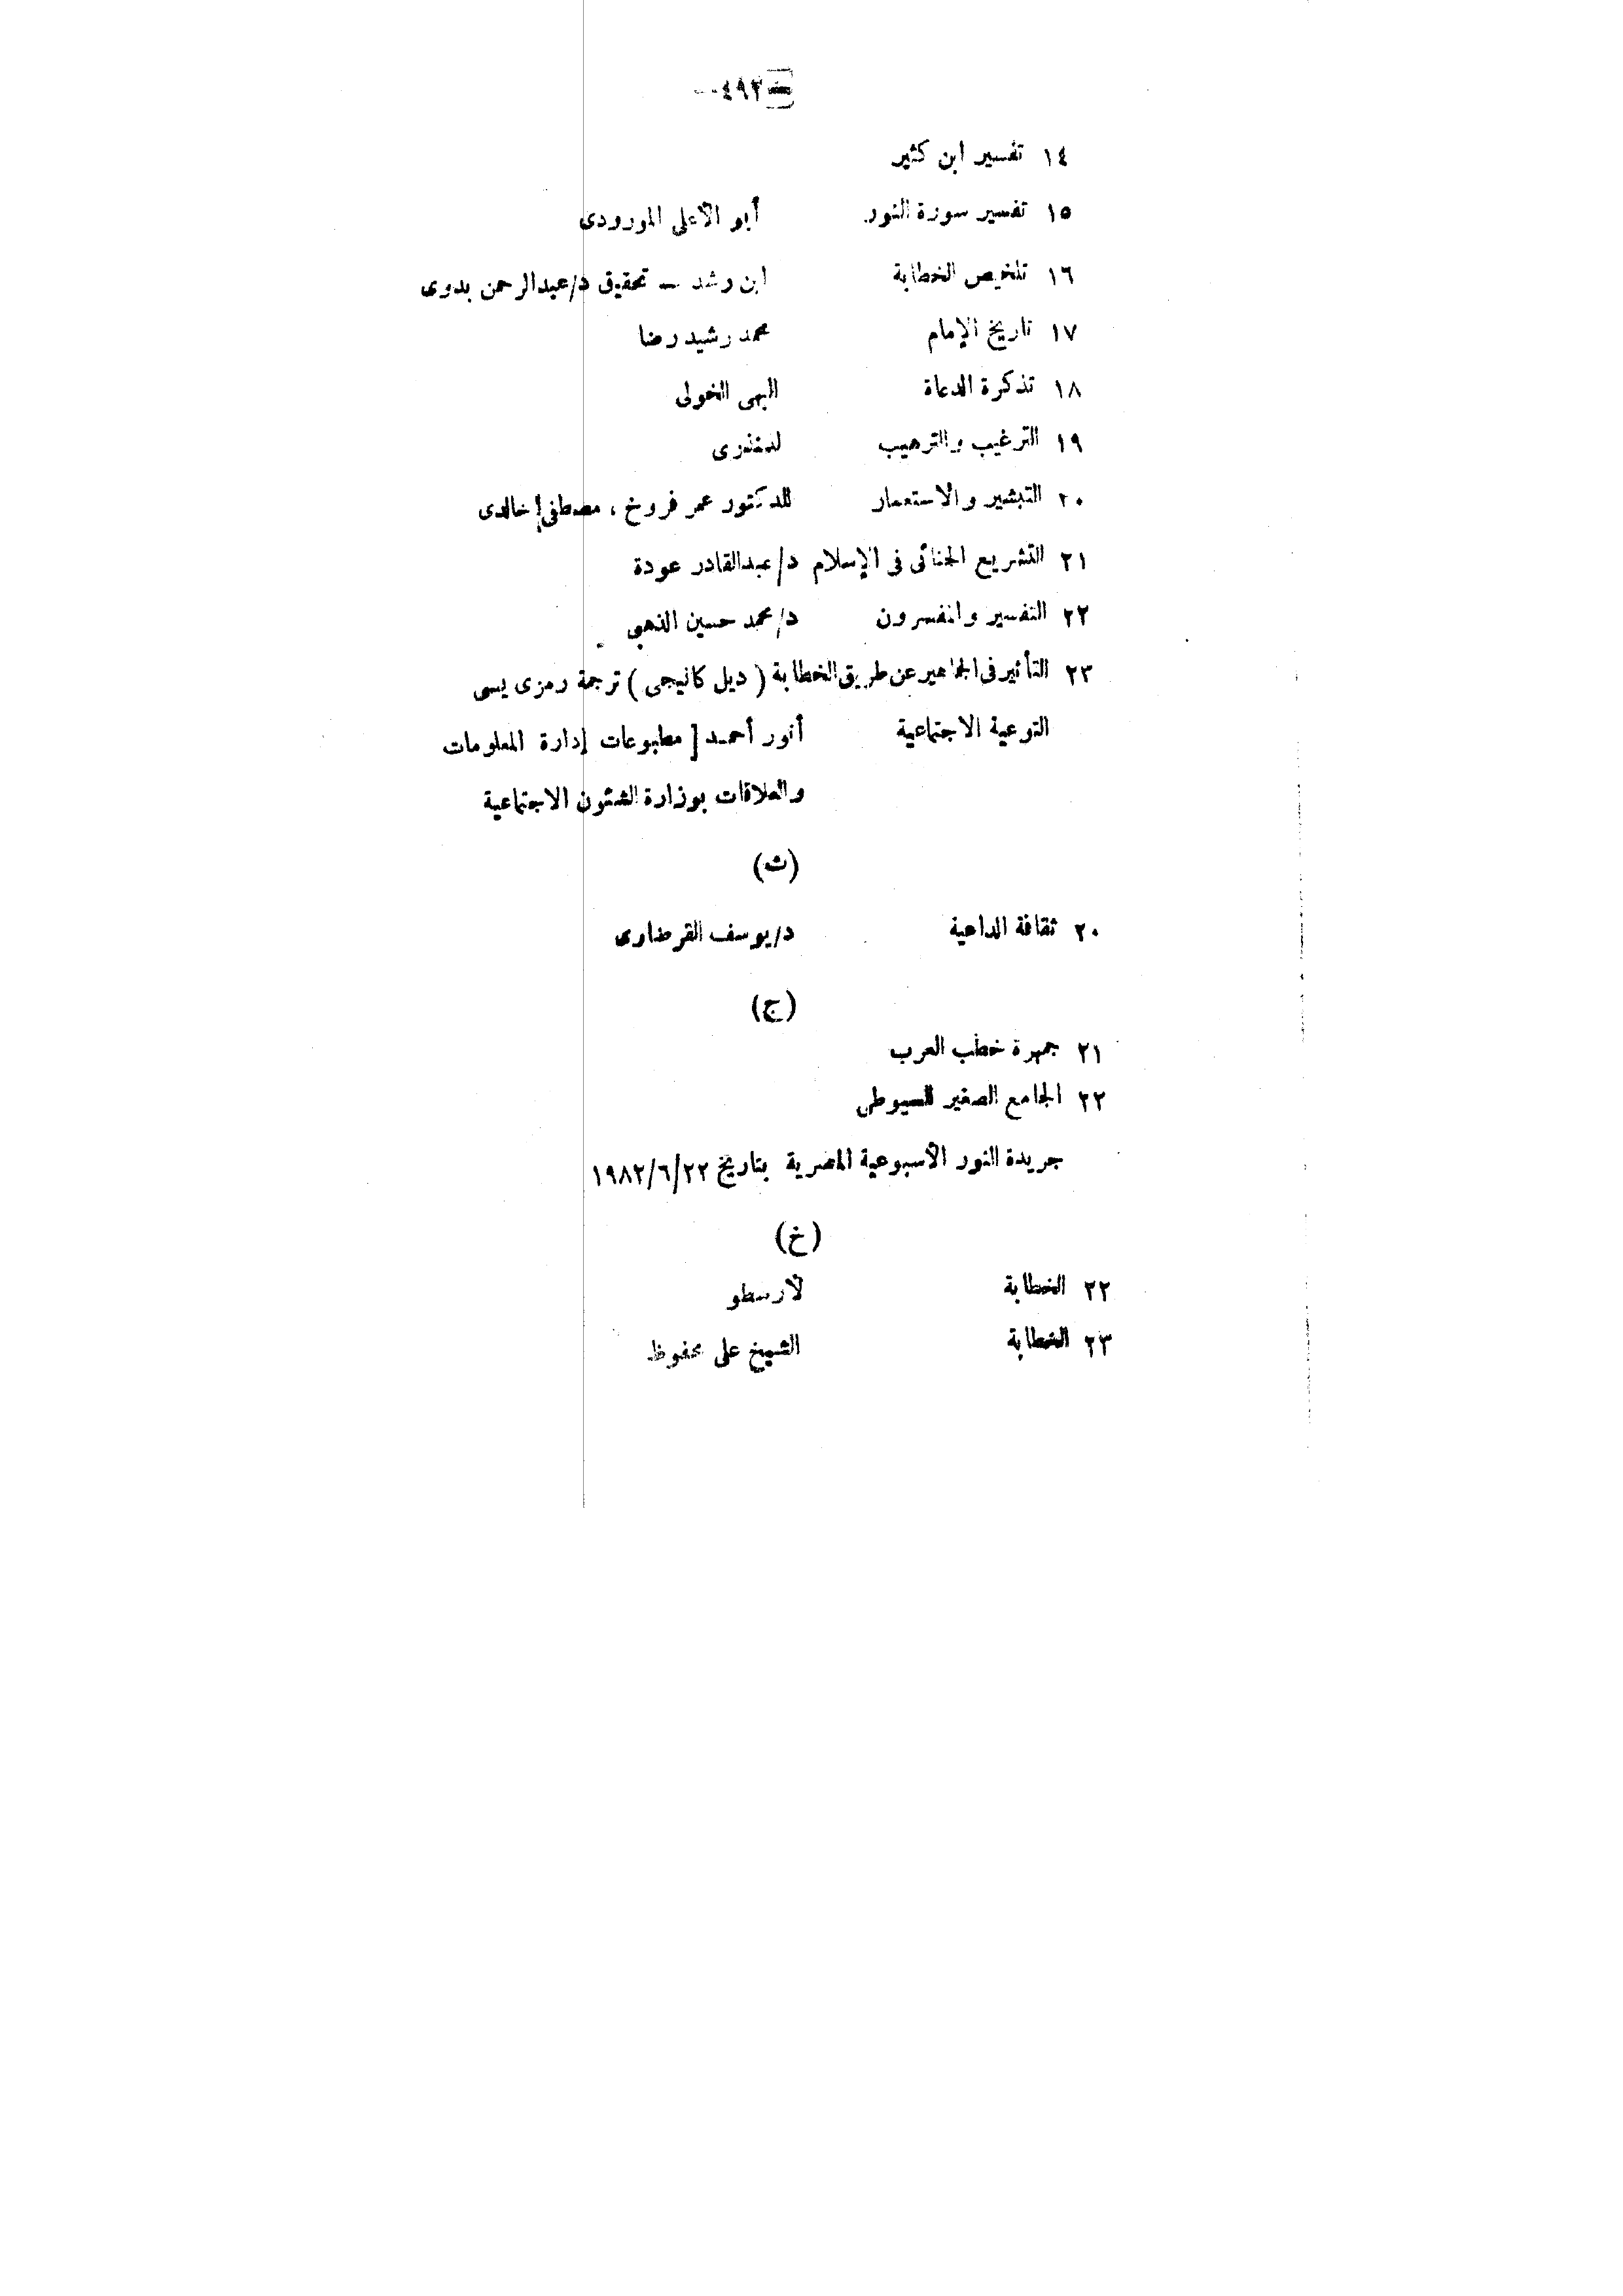 — ٤٩٣ —
١٤ تفسير ابن كثير
١٥ تفسير سورة النور أبو الأعلى المودودى
١٦ تلخيص الخطابة ابن رشد — تحقيق د/عبدالرحمن بدوى
١٧ تاريخ الإمام محمد رشيد رضا
١٨ تذكرة الدعاة البهى الخولى
١٩ الترغيب والترهيب للمنذرى
٢٠ التبشير والاستعمار للدكتور عمر فروخ ، مصطفى خالدى
٢١ التشريع الجنائى فى الإسلام د/عبدالقادر عودة
٢٢ التفسير والمفسرون د/محمد حسين الذهبى
٢٣ التأثير فى الجماهير عن طريق الخطابة ( ديل كانيجى ) ترجمة رمزى يسى
التوعية الاجتماعية أنور أحمد [ مطبوعات إدارة المعلومات
والعلاقات بوزارة الشئون الاجتماعية
(ث)
٢٠ ثقافة الداعية د/يوسف القرضاوى
(ج)
٢١ جمهرة خطب العرب
٢٢ الجامع الصغير للسيوطى
جريدة النور الأسبوعية المصرية بتاريخ ١٩٨٢/٦/٢٢
(خ)
٢٢ الخطابة لأرسطو
٢٣ الخطابة الشيخ على محفوظ